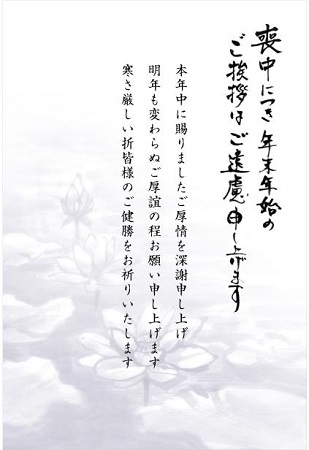 喪中につき年末年始の
ご挨拶はご遠慮申し上げます
本年中に賜りましたご厚情を深謝申し上げ
明年も変わらぬご厚誼の程お願い申し上げます
寒さ厳しい折皆様のご健勝をお祈りいたします